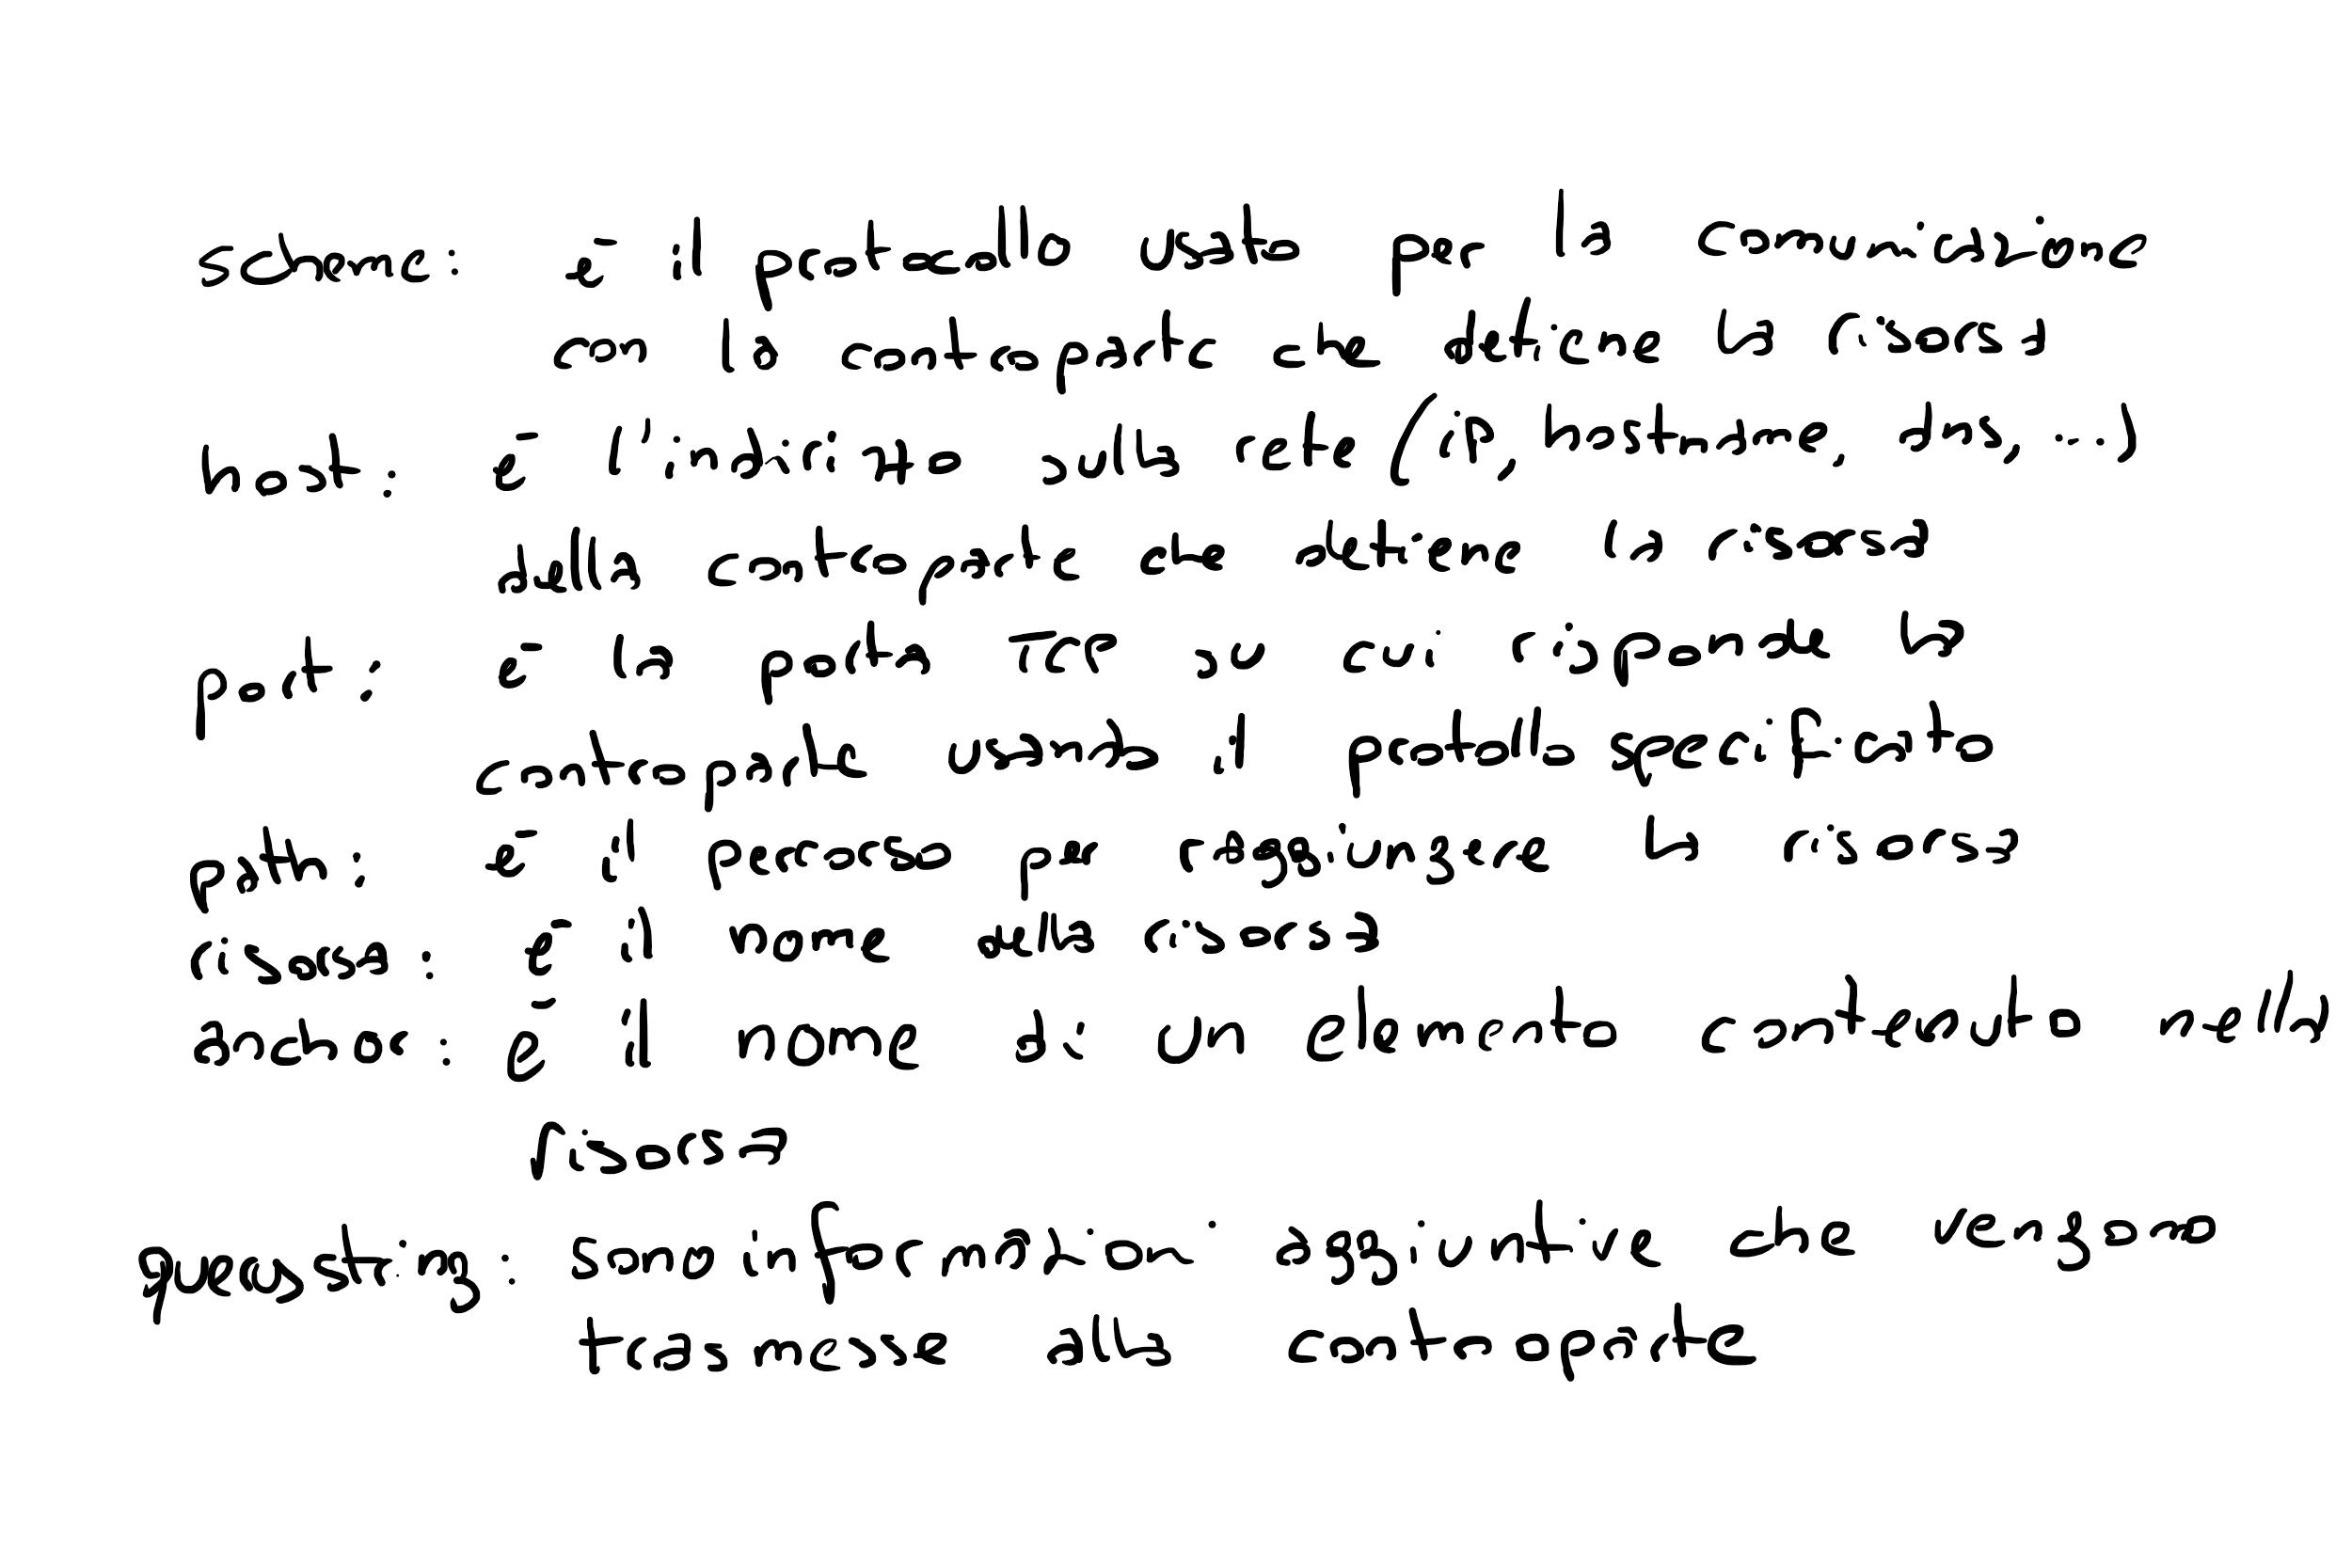 scheme: è il protocollo usato per la comunicazione
con la controparte che detiene la risorsa
host: è l'indirizzo sulla rete (iP, hostname, dns, ...)
della controparte che detiene la risorsa
port: è la porta TCP su cui risponde la
controparte usando il protocollo specificato
path: è il percorso per raggiungere la risorsa
risorsa: è il nome della risorsa
anchor: è il nome di un elemento contenuto nella
risorsa
querystring: sono informazioni aggiuntive che vengono
trasmesse alla controparte